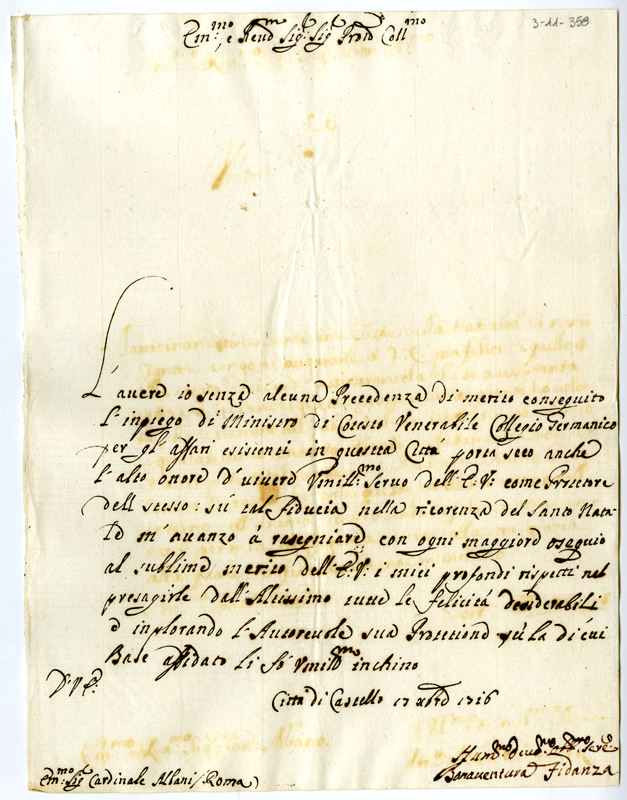 3-11-358
Em:mo, e Reud:mo Sig:r Sig:r Prone Coll:mo
L'auere io senza alcuna Precedenza di merito conseguito
l'inpiego di Ministro di Cotesto Venerabile Collegio Germanico
per gl'affari esistenti in questa Città porta seco anche
l'alto onore d'uiuere Vmill:mo Seruo dell'E:V: come Protetore
dell stesso: sù tal fiducia nella ricorenza del Santo Nata-
le m'auanzo à rasegniare con ogni maggiore osequio
al sublime merito dell'E:V: i miei profondi rispetti nel
presagirle dall'Altissimo tutte le felicità desiderabili
è inplorando l'Autoreuole sua Protetione sù la di cui
Base affidato li fò Vmill:mo inchino
D: V E:
Città di Castello 17 xbre 1716
Hum:mo Deu:mo Obb:mo Sere
Bonauentura Fidanza
Em:mo Sig:r Cardinale Albani / Roma)